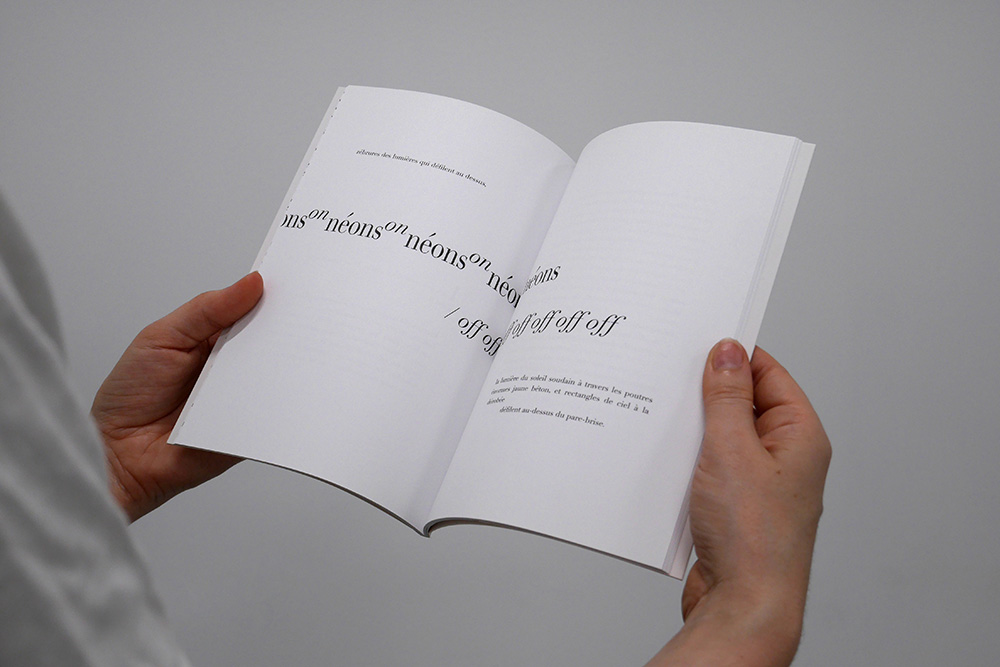 zébrures des lumières qui défilent au dessus,
ons on néons on néons on néons
/ off off off off off off
la lumière du soleil soudain à travers les poutres
traverses jaune béton, et rectangles de ciel à la
dérobée
défilent au-dessus du pare-brise.